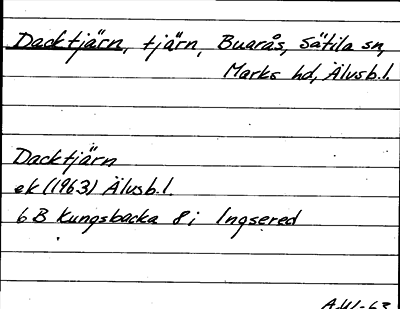 Dacktjärn, tjärn, Buarås, Sätila sn,
Marks hd, Älvsb.l.
Dacktjärn
ek (1963) Älvsb.l.
6B Kungsbacka 8i Ingsered